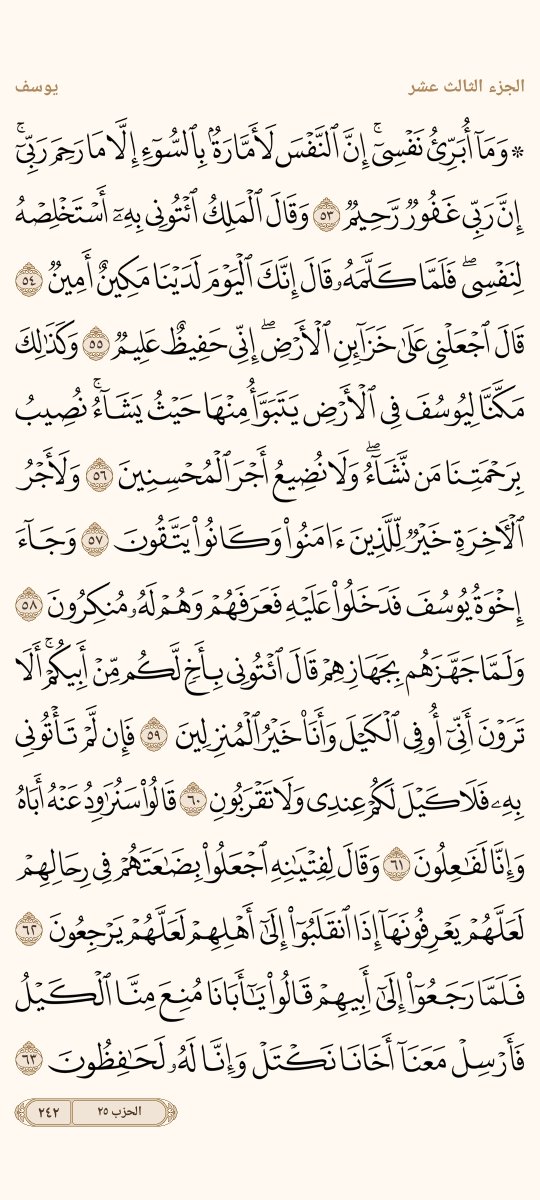 الجزء الثالث عشر
يوسف
۞ وَمَآ أُبَرِّئُ نَفْسِىٓ ۚ إِنَّ ٱلنَّفْسَ لَأَمَّارَةٌۢ بِٱلسُّوٓءِ إِلَّا مَا رَحِمَ رَبِّىٓ ۚ
إِنَّ رَبِّى غَفُورٌ رَّحِيمٌ ٥٣ وَقَالَ ٱلْمَلِكُ ٱئْتُونِى بِهِۦٓ أَسْتَخْلِصْهُ
لِنَفْسِى ۖ فَلَمَّا كَلَّمَهُۥ قَالَ إِنَّكَ ٱلْيَوْمَ لَدَيْنَا مَكِينٌ أَمِينٌ ٥٤
قَالَ ٱجْعَلْنِى عَلَىٰ خَزَآئِنِ ٱلْأَرْضِ ۖ إِنِّى حَفِيظٌ عَلِيمٌ ٥٥ وَكَذَٰلِكَ
مَكَّنَّا لِيُوسُفَ فِى ٱلْأَرْضِ يَتَبَوَّأُ مِنْهَا حَيْثُ يَشَآءُ ۚ نُصِيبُ
بِرَحْمَتِنَا مَن نَّشَآءُ ۖ وَلَا نُضِيعُ أَجْرَ ٱلْمُحْسِنِينَ ٥٦ وَلَأَجْرُ
ٱلْـَٔاخِرَةِ خَيْرٌ لِّلَّذِينَ ءَامَنُوا۟ وَكَانُوا۟ يَتَّقُونَ ٥٧ وَجَآءَ
إِخْوَةُ يُوسُفَ فَدَخَلُوا۟ عَلَيْهِ فَعَرَفَهُمْ وَهُمْ لَهُۥ مُنكِرُونَ ٥٨
وَلَمَّا جَهَّزَهُم بِجَهَازِهِمْ قَالَ ٱئْتُونِى بِأَخٍ لَّكُم مِّنْ أَبِيكُمْ ۚ أَلَا
تَرَوْنَ أَنِّىٓ أُوفِى ٱلْكَيْلَ وَأَنَا۠ خَيْرُ ٱلْمُنزِلِينَ ٥٩ فَإِن لَّمْ تَأْتُونِى
بِهِۦ فَلَا كَيْلَ لَكُمْ عِندِى وَلَا تَقْرَبُونِ ٦٠ قَالُوا۟ سَنُرَٰوِدُ عَنْهُ أَبَاهُ
وَإِنَّا لَفَـٰعِلُونَ ٦١ وَقَالَ لِفِتْيَـٰنِهِ ٱجْعَلُوا۟ بِضَـٰعَتَهُمْ فِى رِحَالِهِمْ
لَعَلَّهُمْ يَعْرِفُونَهَآ إِذَا ٱنقَلَبُوٓا۟ إِلَىٰٓ أَهْلِهِمْ لَعَلَّهُمْ يَرْجِعُونَ ٦٢
فَلَمَّا رَجَعُوٓا۟ إِلَىٰٓ أَبِيهِمْ قَالُوا۟ يَـٰٓأَبَانَا مُنِعَ مِنَّا ٱلْكَيْلُ
فَأَرْسِلْ مَعَنَآ أَخَانَا نَكْتَلْ وَإِنَّا لَهُۥ لَحَـٰفِظُونَ ٦٣
الحزب ٢٥
٢٤٢